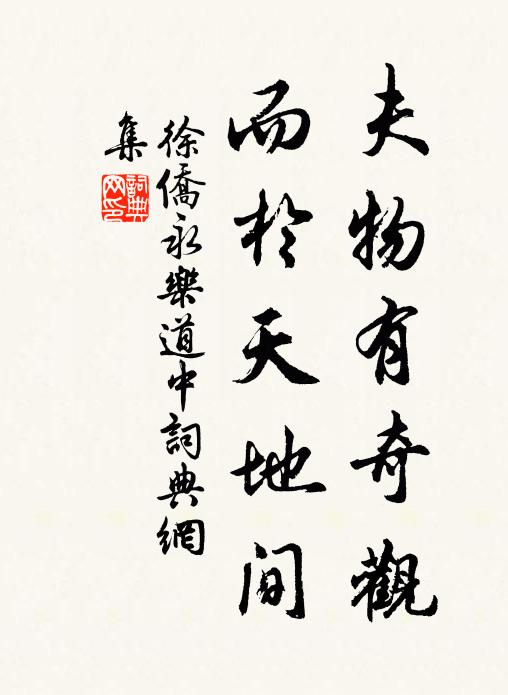 夫物有奇觀
而於天地间
徐僑永樂道中詞典網
集
詞典
网印